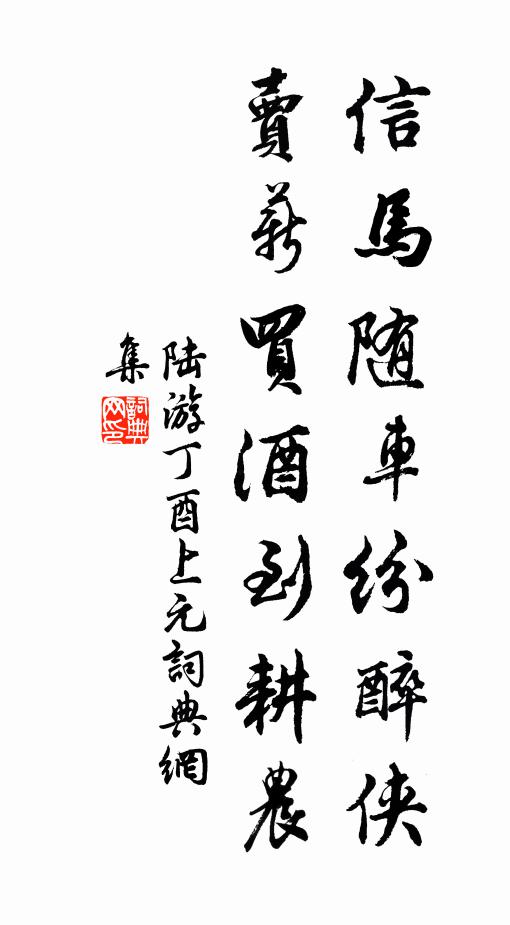 信馬随車紛醉俠
賣薪買酒到耕農
陆游丁酉上元詞典網
集
詞典网印